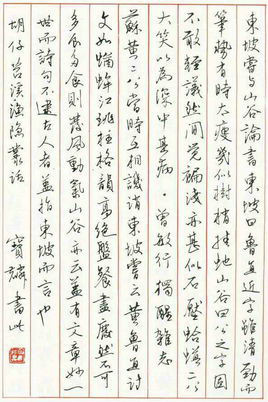 東坡嘗与山谷論書東坡曰魯直近字雖清勁而
筆勢有時太瘦幾似樹梢挂蛇山谷曰公之字固
不敢輕議然間覺褊淺亦甚似石壓蛤蟆二公
大笑以為深中其病·曾敏行獨醒雜志
蘇黄二公當時互相譏誚東坡嘗云黄魯直詩
文如蝤蛑江瑶柱格韻高絶盤餐盡廢然不可
多食多食則發風動氣山谷亦云蓋有文章妙一
世而詩句不逮古人者蓋指東坡而言也
胡仔苕溪漁隱叢話
寶麟書此